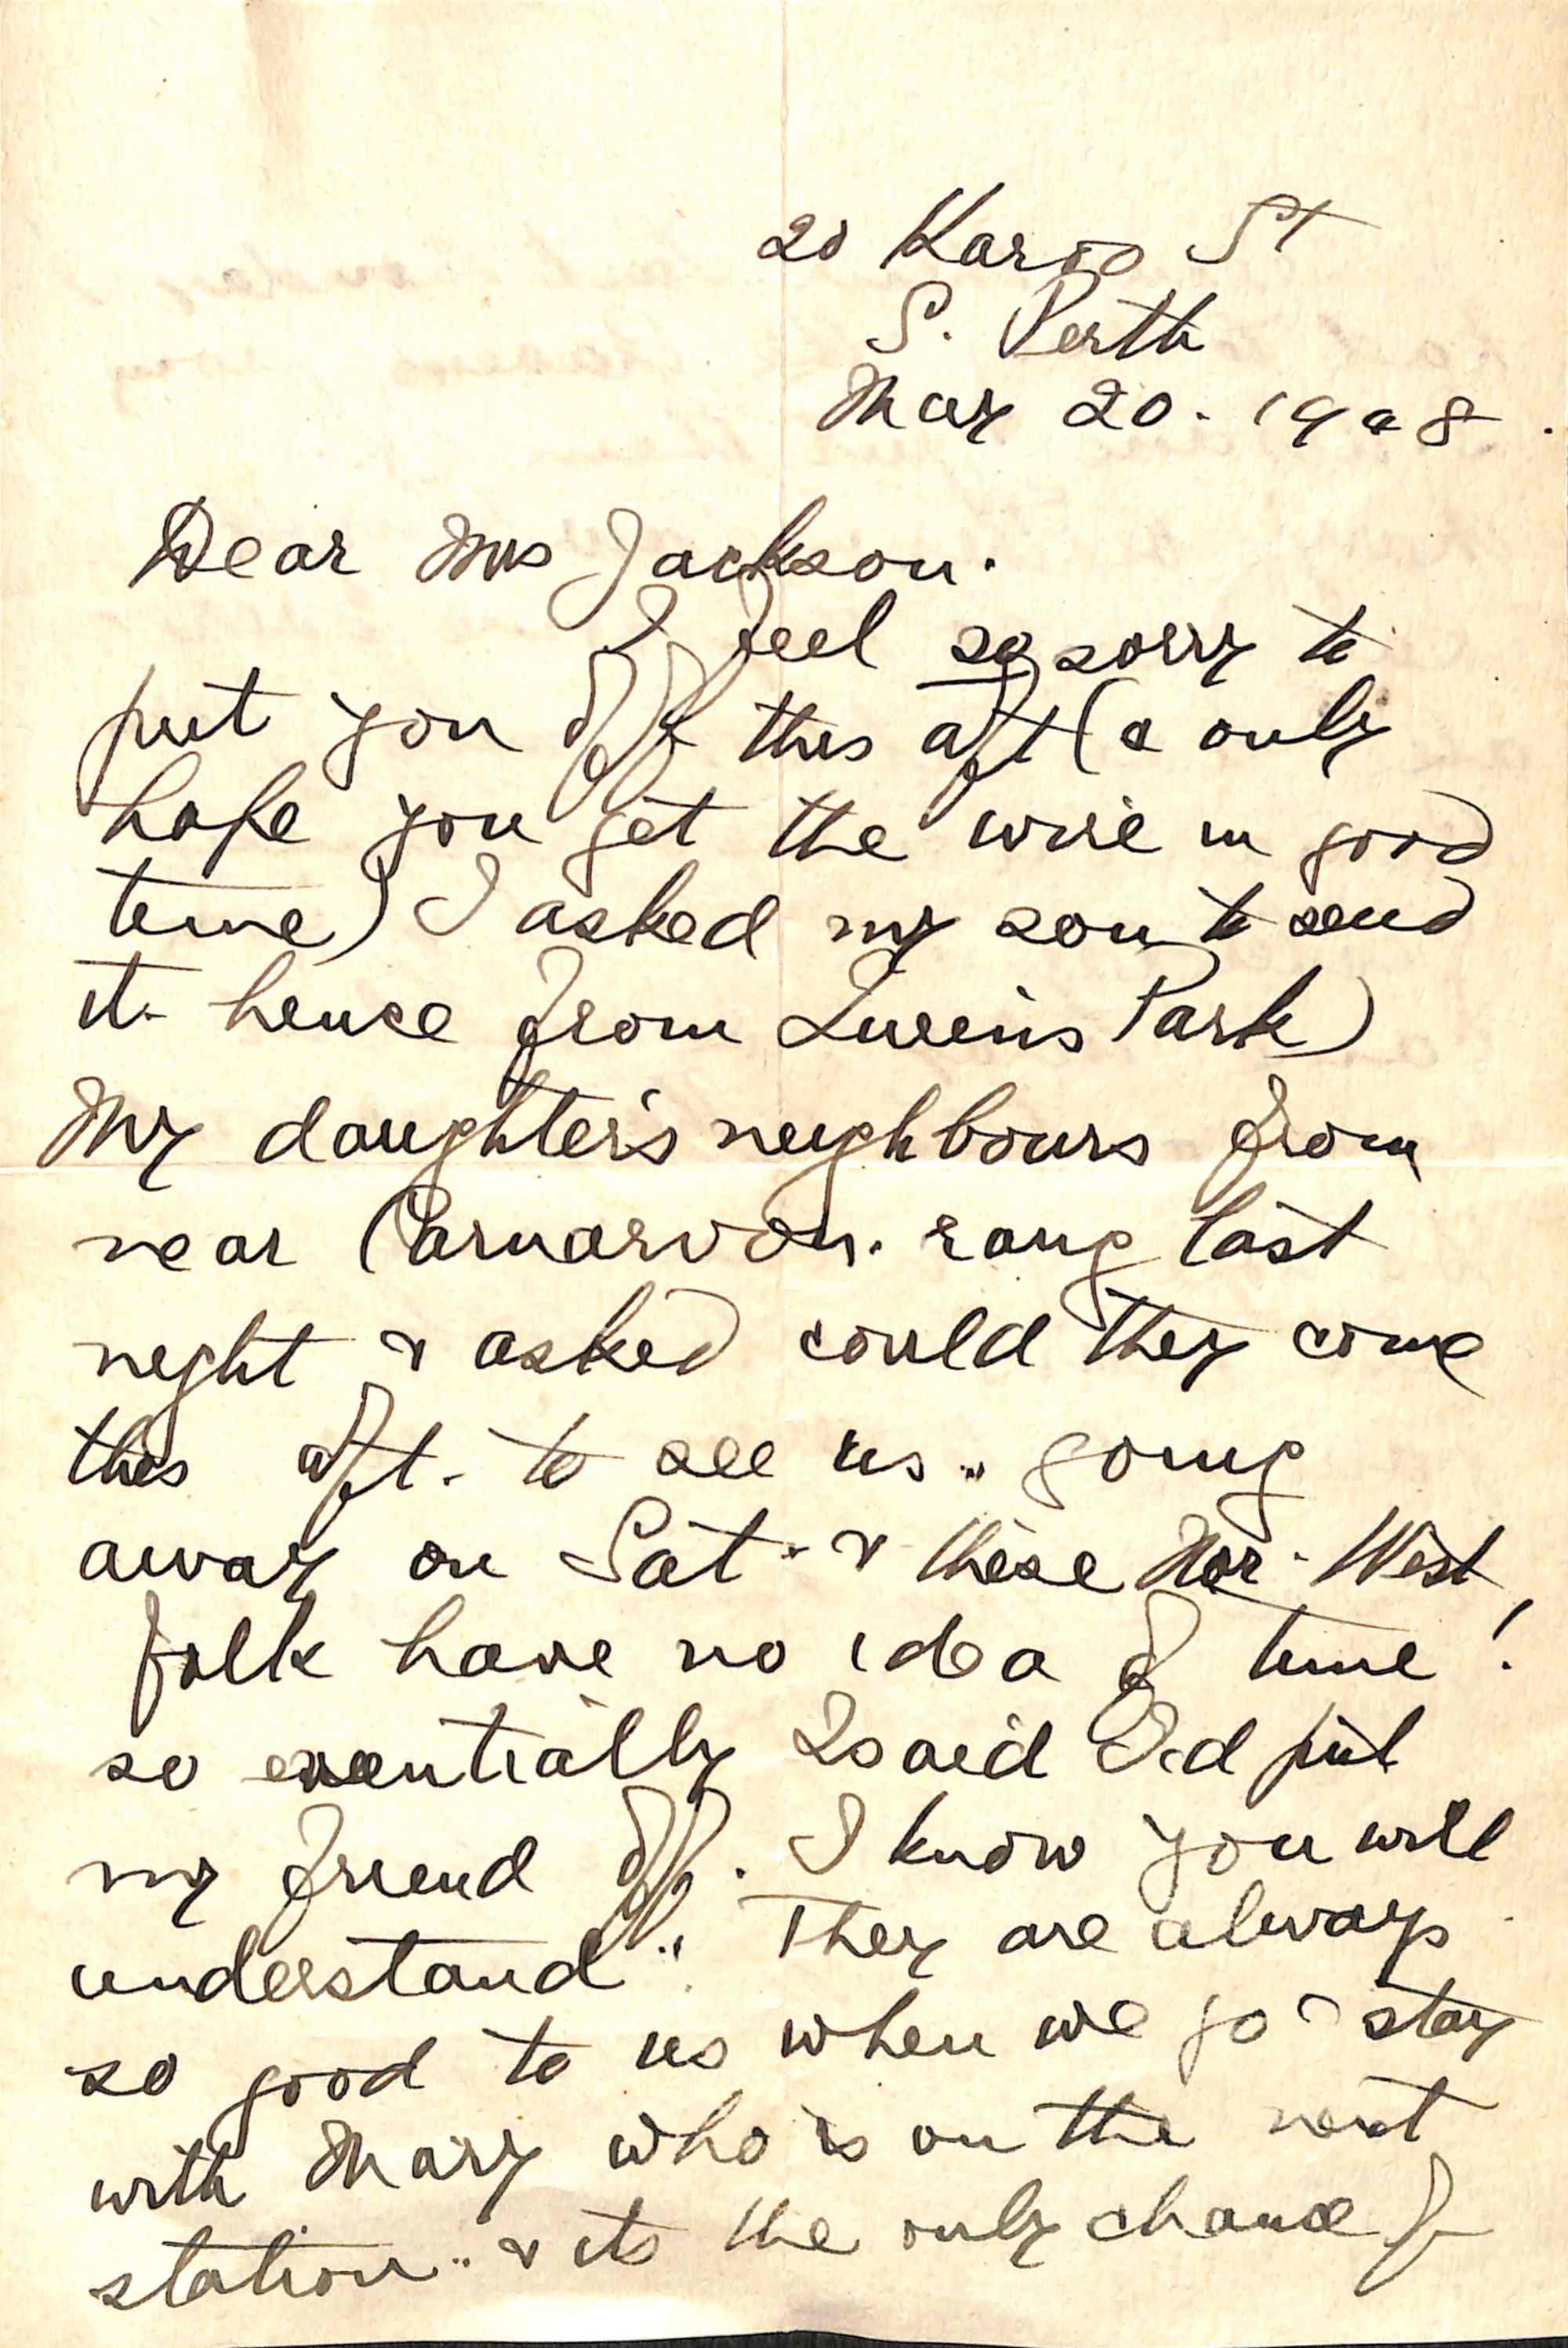 20 Karoo St
S. Perth
May 20. 1948.
Dear Mrs Jackson.
I feel so sorry to
put you off this aft (& only
hope you get the wire in good
time) I asked my son to send
it - hence from Queens Park)
My daughter's neighbours from
near Carnarvon. rang last
night & asked could they come
this aft. to see us.. going
away on Sat. & these Nor-West
folk have no idea of time!
so eventually I said I'd put
my friend off. I know you will
understand.. They are always
so good to us when we go & stay
with Mary who is on the next
station.. & its the only chance f